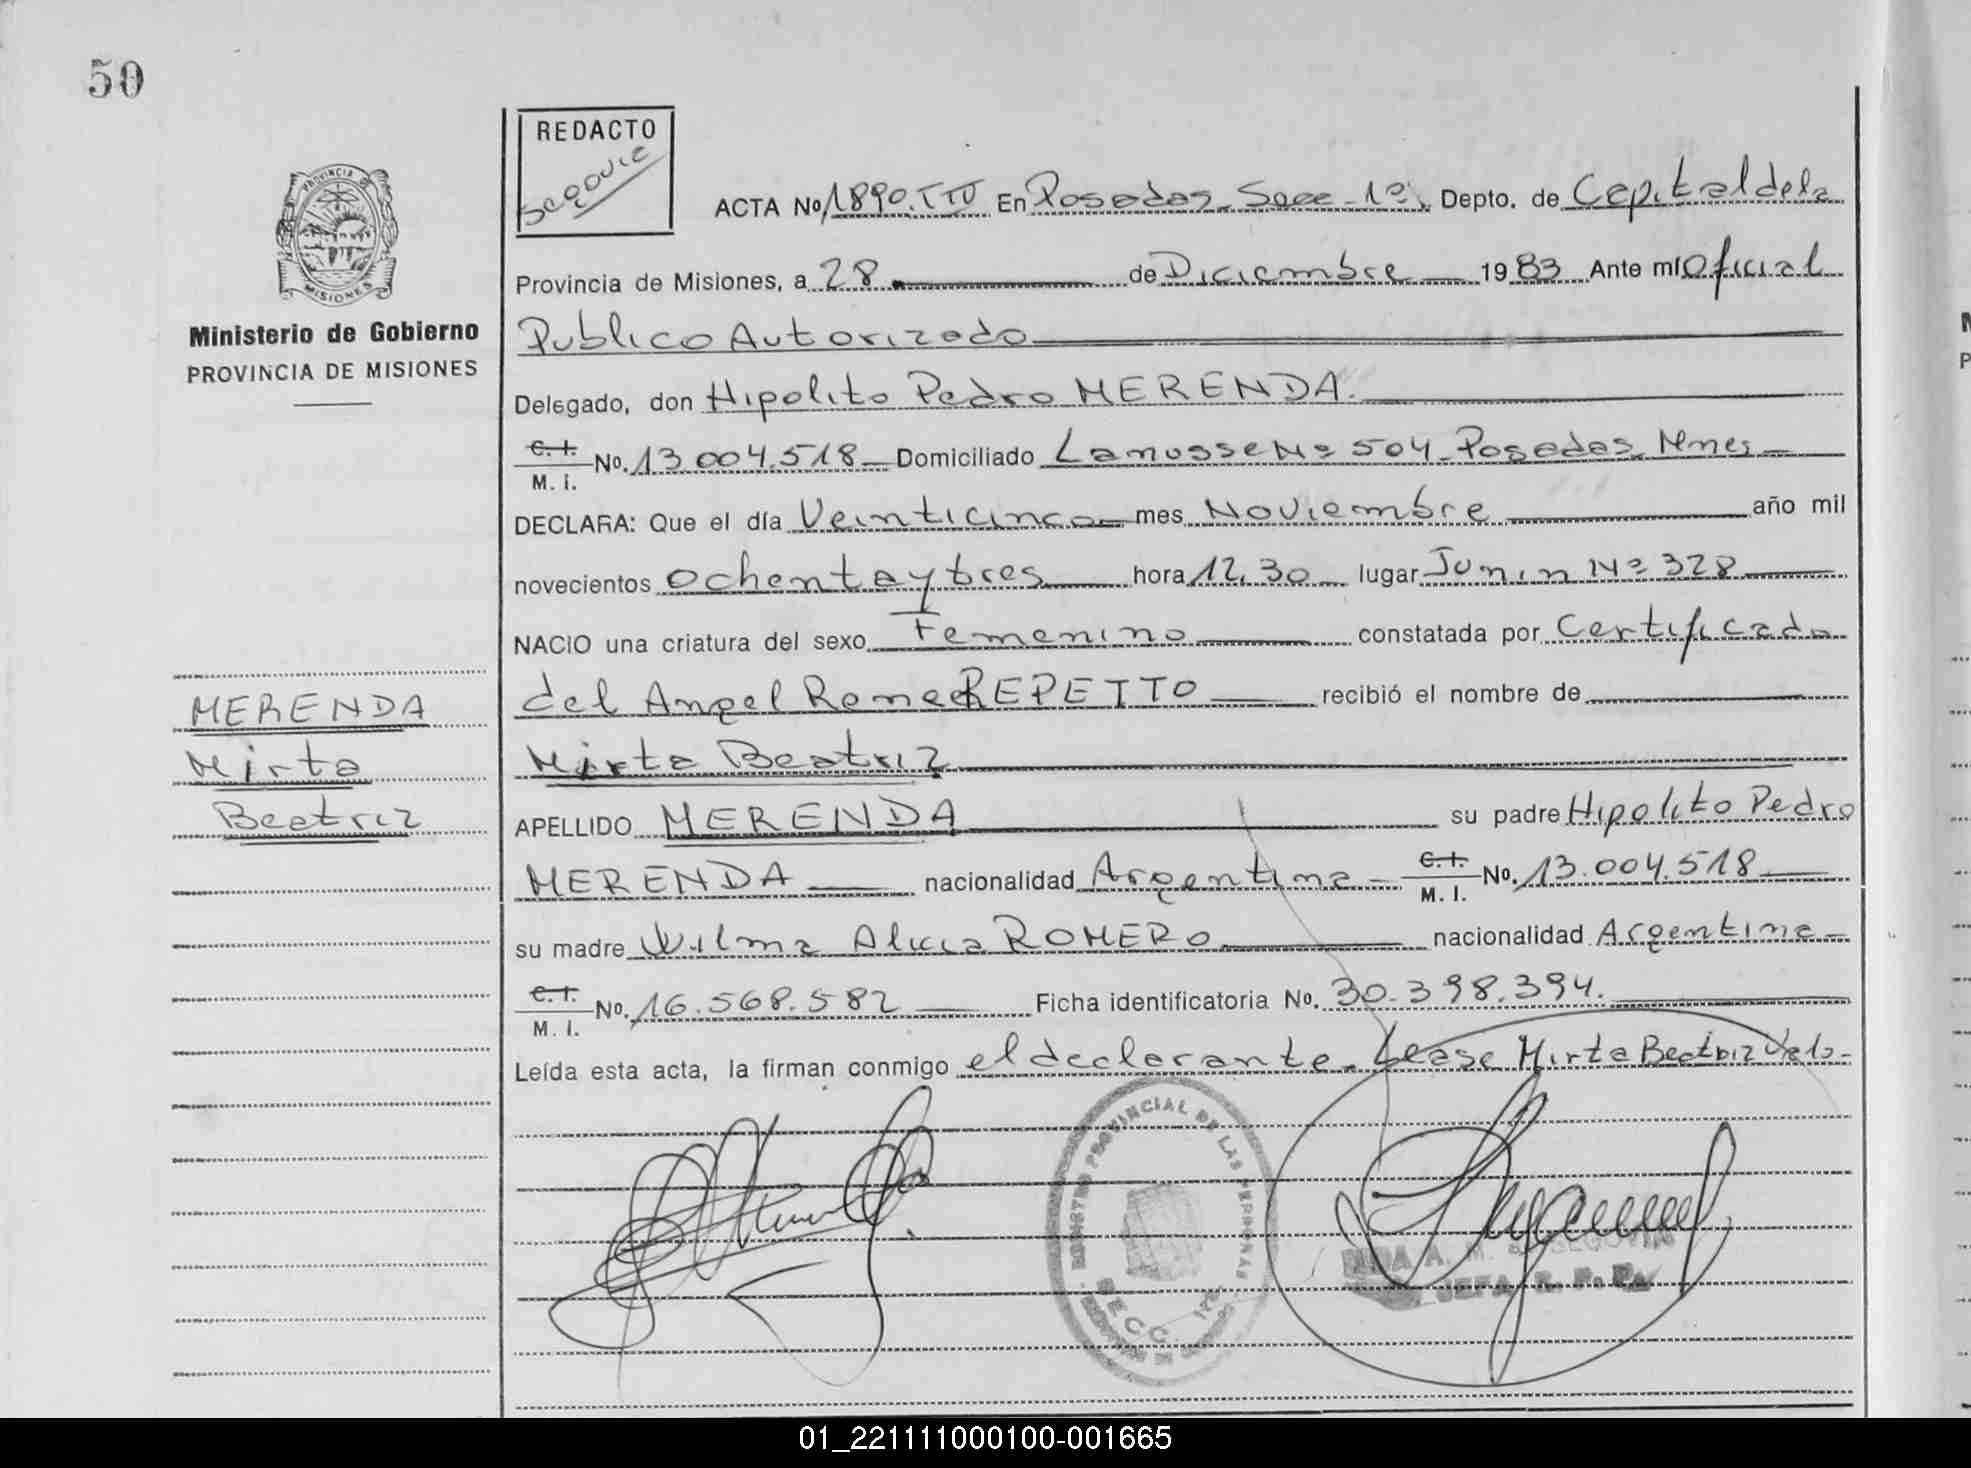 50
REDACTO
Segovia
PROVINCIA DE
MISIONES
Ministerio de Gobierno
PROVINCIA DE MISIONES
ACTA No 1890.TIU En Posadas Secc - 1ª, Depto. de Capital de la
Provincia de Misiones, a 28 de Diciembre 1983 Ante mí Oficial
Publico Autorizado
Delegado, don Hipolito Pedro MERENDA.
C. I.
M. I. No. 13.004.518 Domiciliado Lanusse Nº 504 - Posadas Mnes
DECLARA: Que el día Veinticinco mes Noviembre año mil
novecientos ochenta y tres hora 12,30 lugar Junin Nº 328
NACIO una criatura del sexo Femenino constatada por Certificado
del Angel Rene REPETTO recibió el nombre de
Mirta Beatriz
APELLIDO MERENDA su padre Hipolito Pedro
MERENDA nacionalidad Argentina C. I.
M. I. No. 13.004.518
su madre Wilma Alicia ROMERO nacionalidad Argentina
C. I.
M. I. No. 16.568.582 Ficha identificatoria No. 30.398.394.
Leída esta acta, la firman conmigo el declarante. Lease Mirta Beatriz Vale
MERENDA
Mirta
Beatriz
REGISTRO PROVINCIAL DE LAS PERSONAS
SECC. 1ra.
SEGOVIA
JEFA R. P. P.
01_221111000100-001665